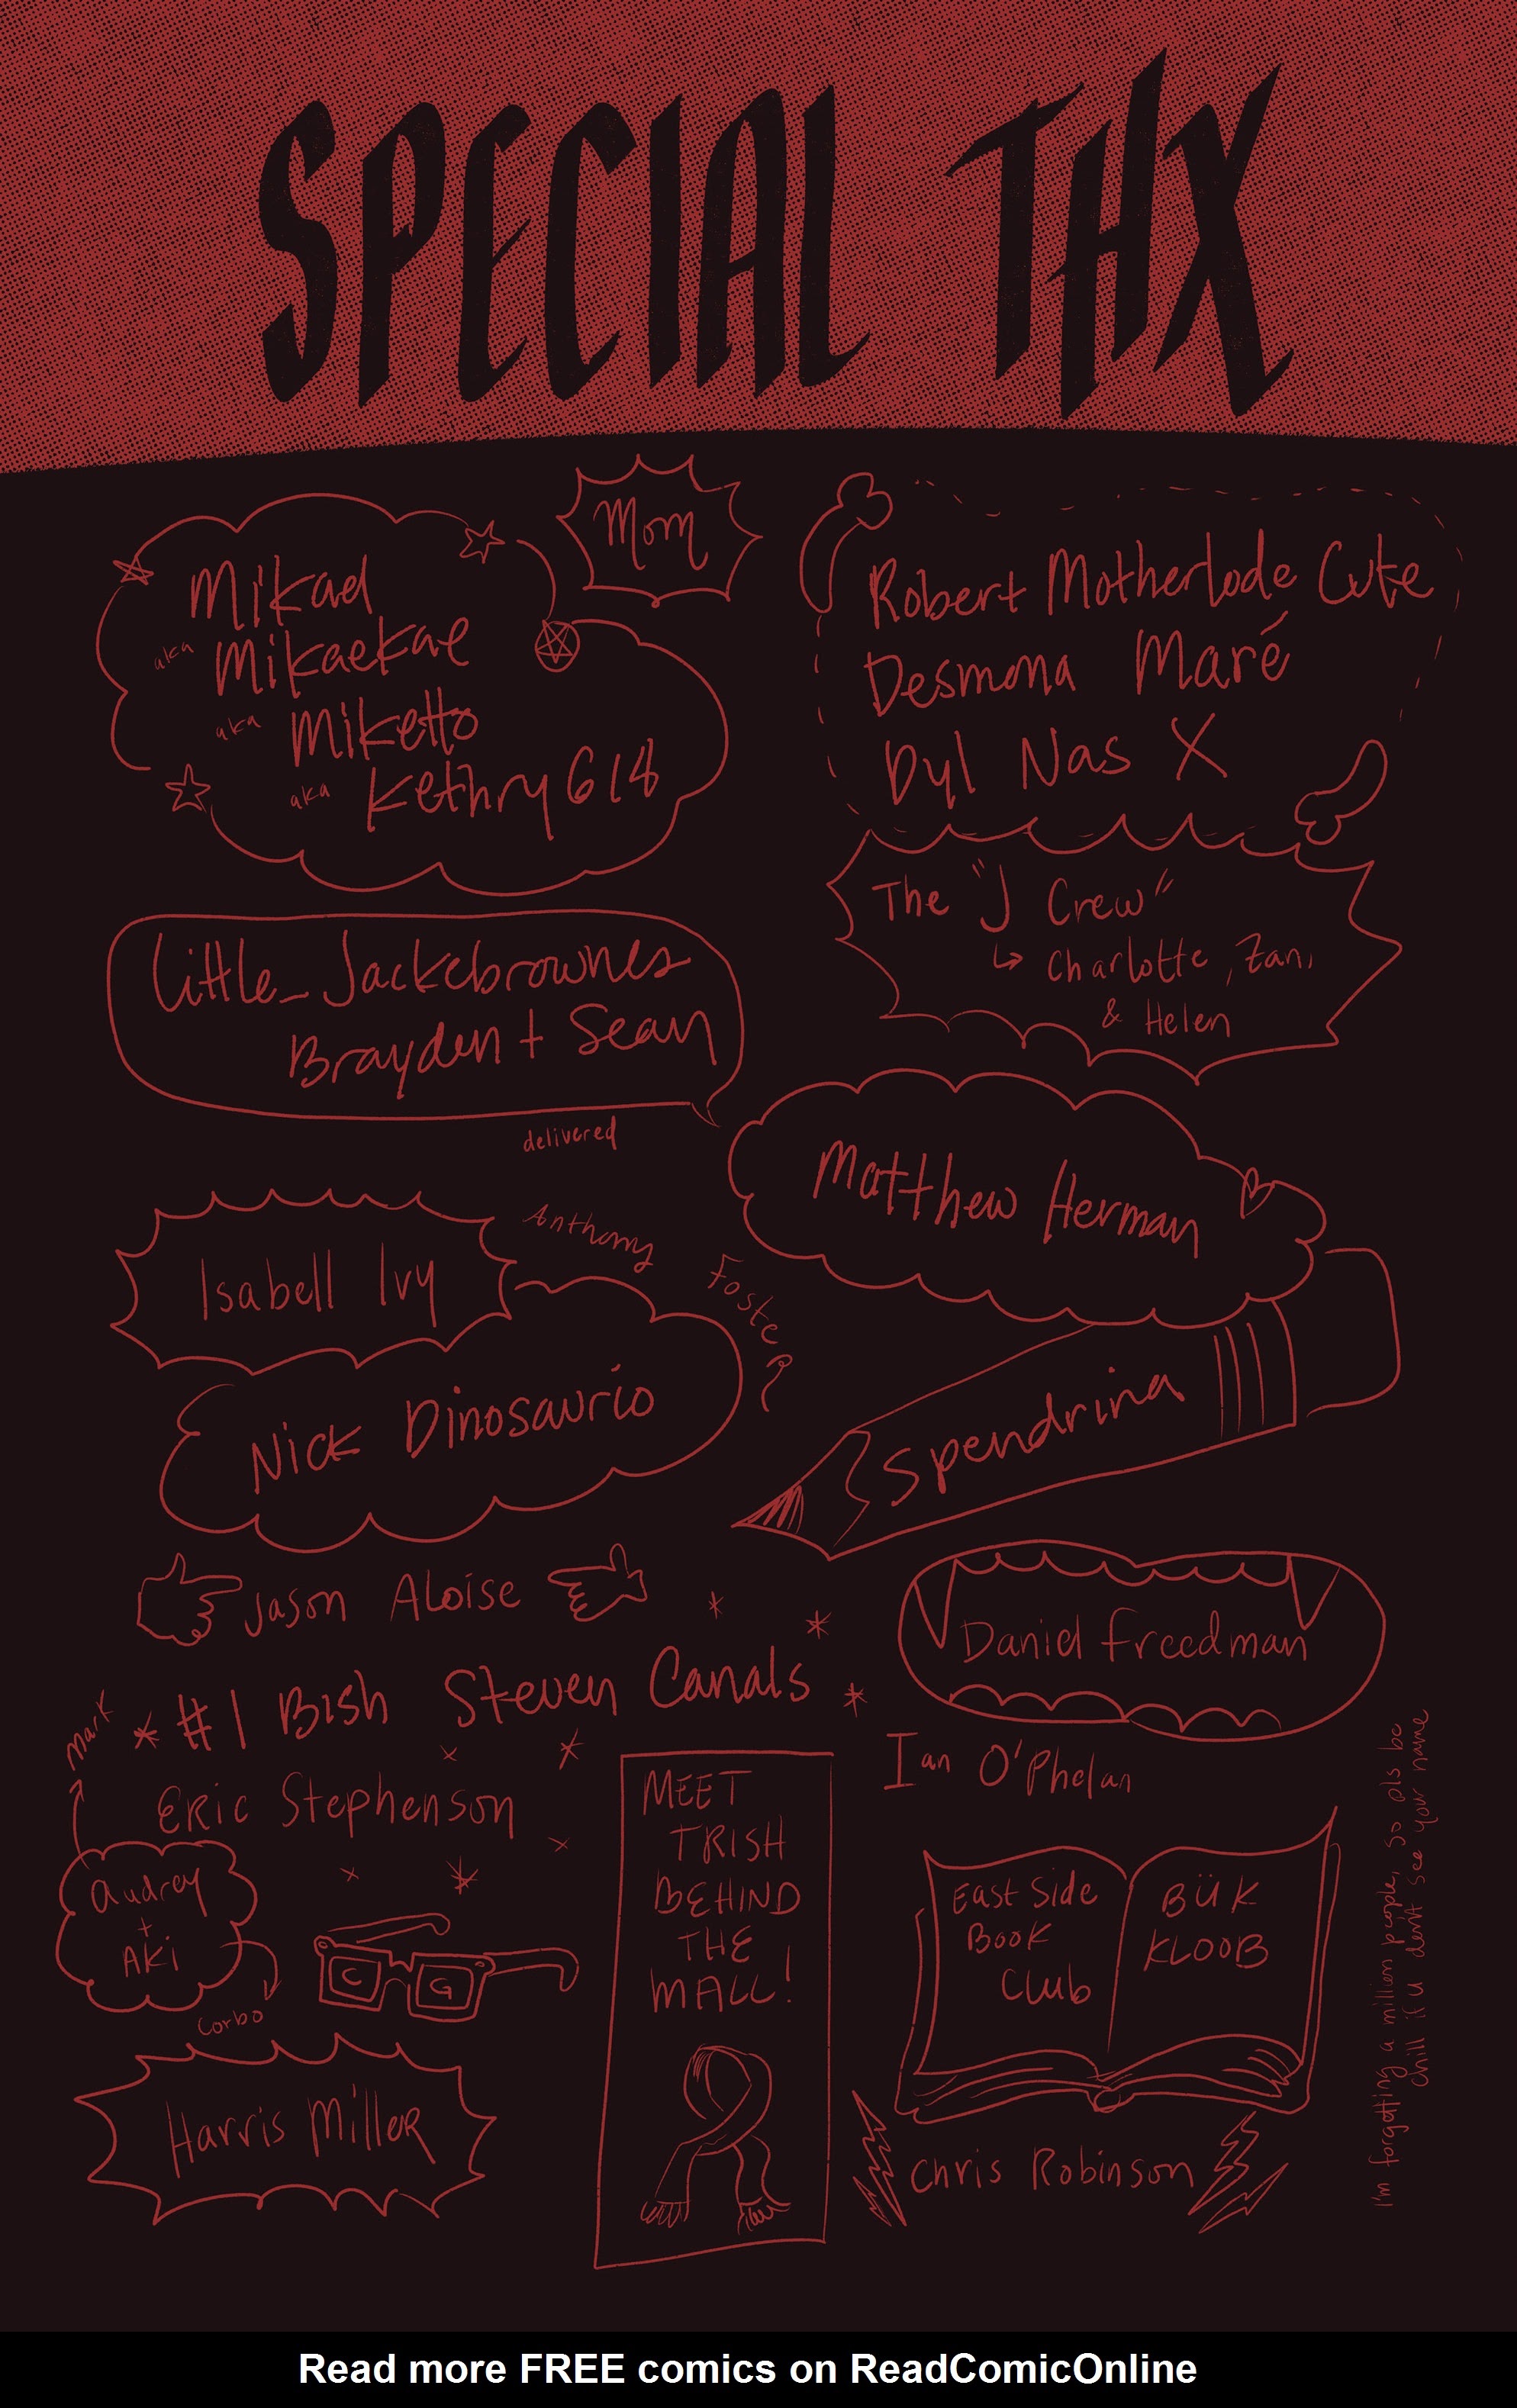 SPECIAL THX
Mom
Mikael
aka Mikaekae
aka Miketto
aka Kethry618
Robert Motherlode Cute
Desmona Maré
Dyl Nas X
The "J Crew"
↳ Charlotte, Zan,
& Helen
Little_Jackebrownes
Brayden + Sean
delivered
Matthew Herman
Isabell Ivy
Anthony
Foster
Nick Dinosaurio
Spendrina
Jason Aloise
Daniel Freedman
#1 Bish Steven Canals
Mark
Ian O'Phelan
Eric Stephenson
Audrey
+
Aki
Corbo
C G
MEET
TRISH
BEHIND
THE
MALL!
East Side
Book
Club
BÜK
KLOOB
Harris Miller
Chris Robinson
I'm forgetting a million people, so pls be
chill if u don't see your name
Read more FREE comics on ReadComicOnline